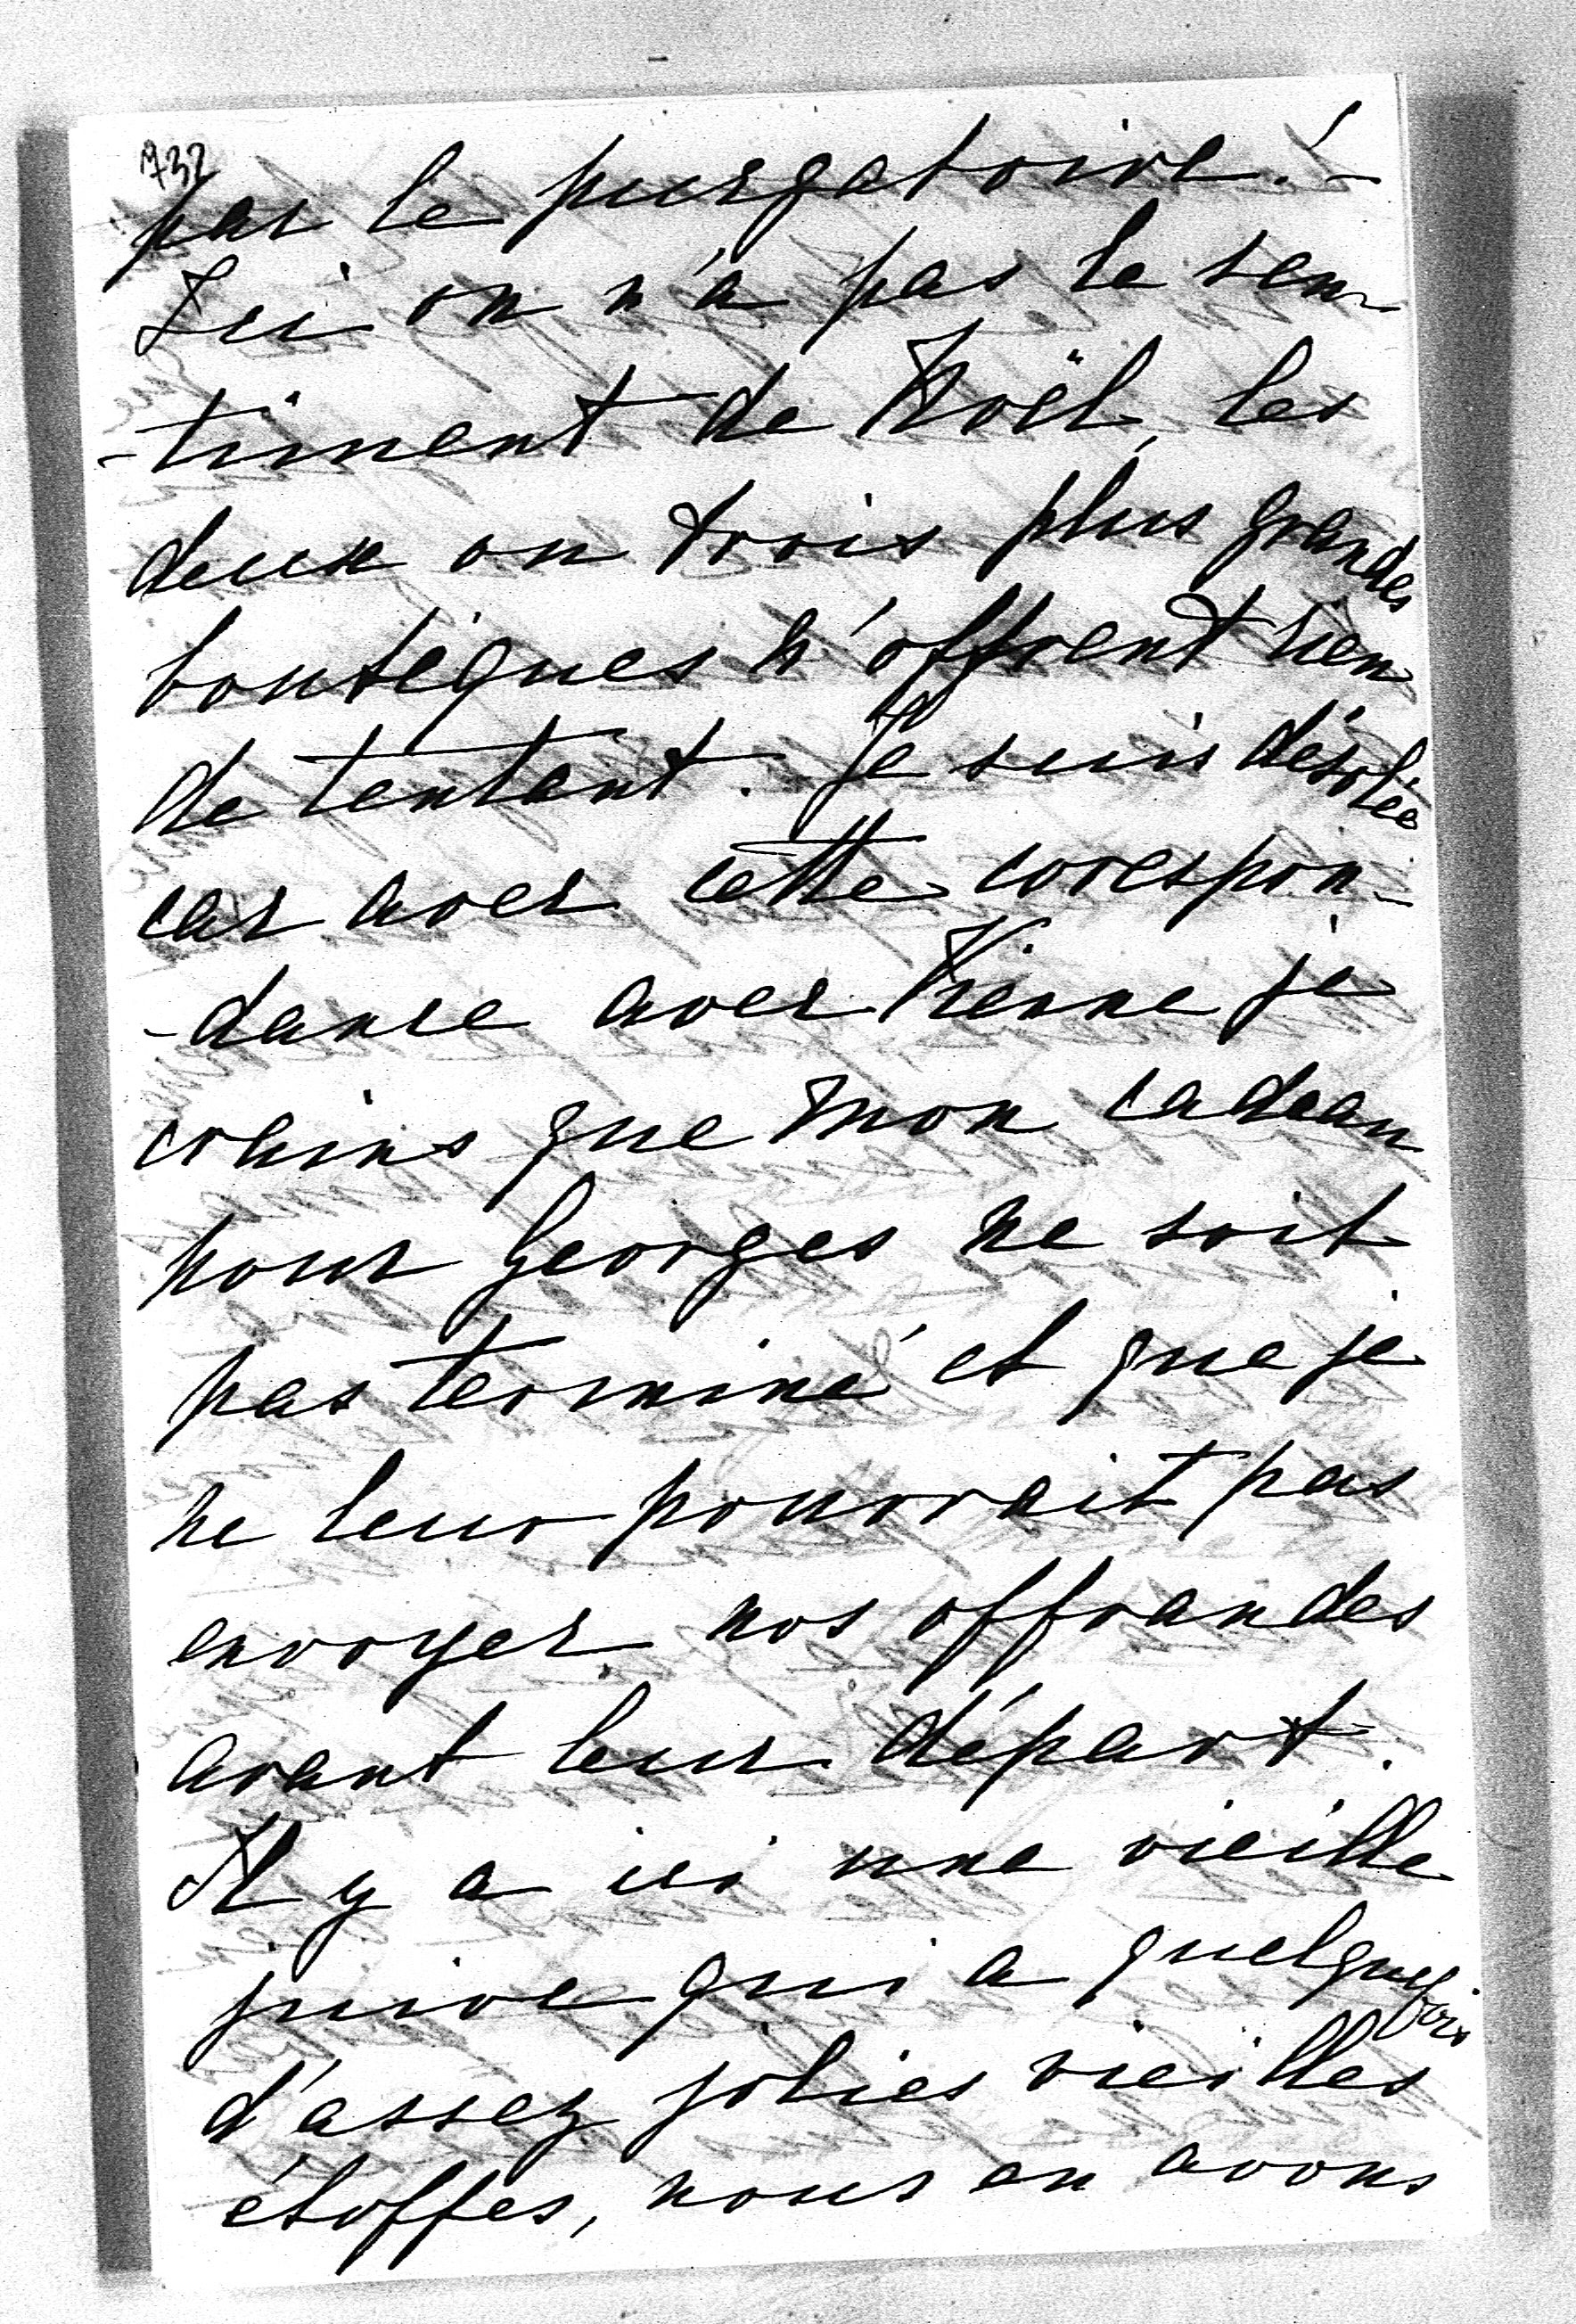 732
par le purgatoire! –
Ici on n'a pas le sen-
-timent de Noël, les
deux ou trois plus grandes
boutiques n'offrent rien
de tentant. Je suis désolée
car avec cette corespon-
-dance avec Vienne je
crains que mon cadeau
pour Georges ne soit
pas terminé et que je
ne leur pourrait pas
envoyer nos offrandes
avant leur départ.
Il y a ici une vieille
juive qui a quelquefois
d'assez jolies vieilles
étoffes, nous en avons